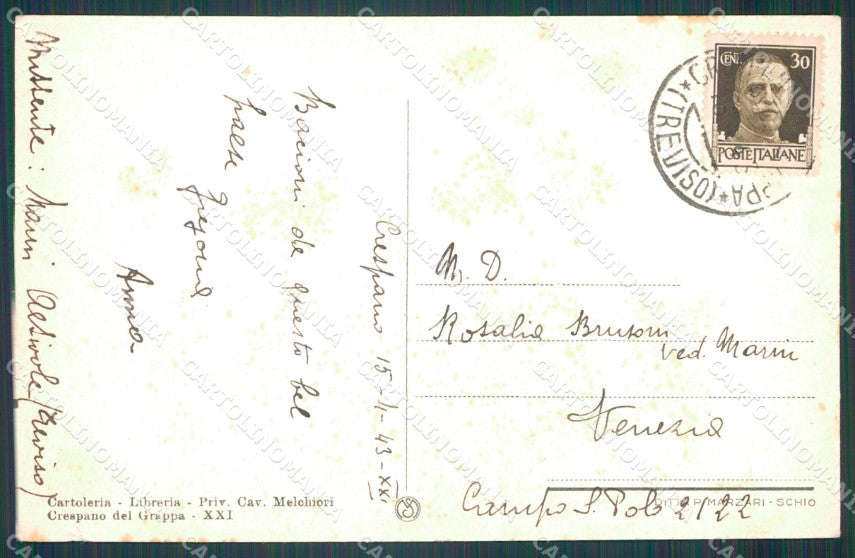 Mittente: Marin Altivole (Treviso)
Crespano 15-4-43-XXI
Bacioni da questo bel
paese
Anna
CENI. 30
POSTE ITALIANE
(TREVISO)
M. D.
Rosalia Brusoni
ved. Marin
Venezia
Campo S. Polo 2122
Cartoleria - Libreria - Priv. Cav. Melchiori
Crespano del Grappa - XXI
P. MARZARI - SCHIO
CARTOLINOMANIA